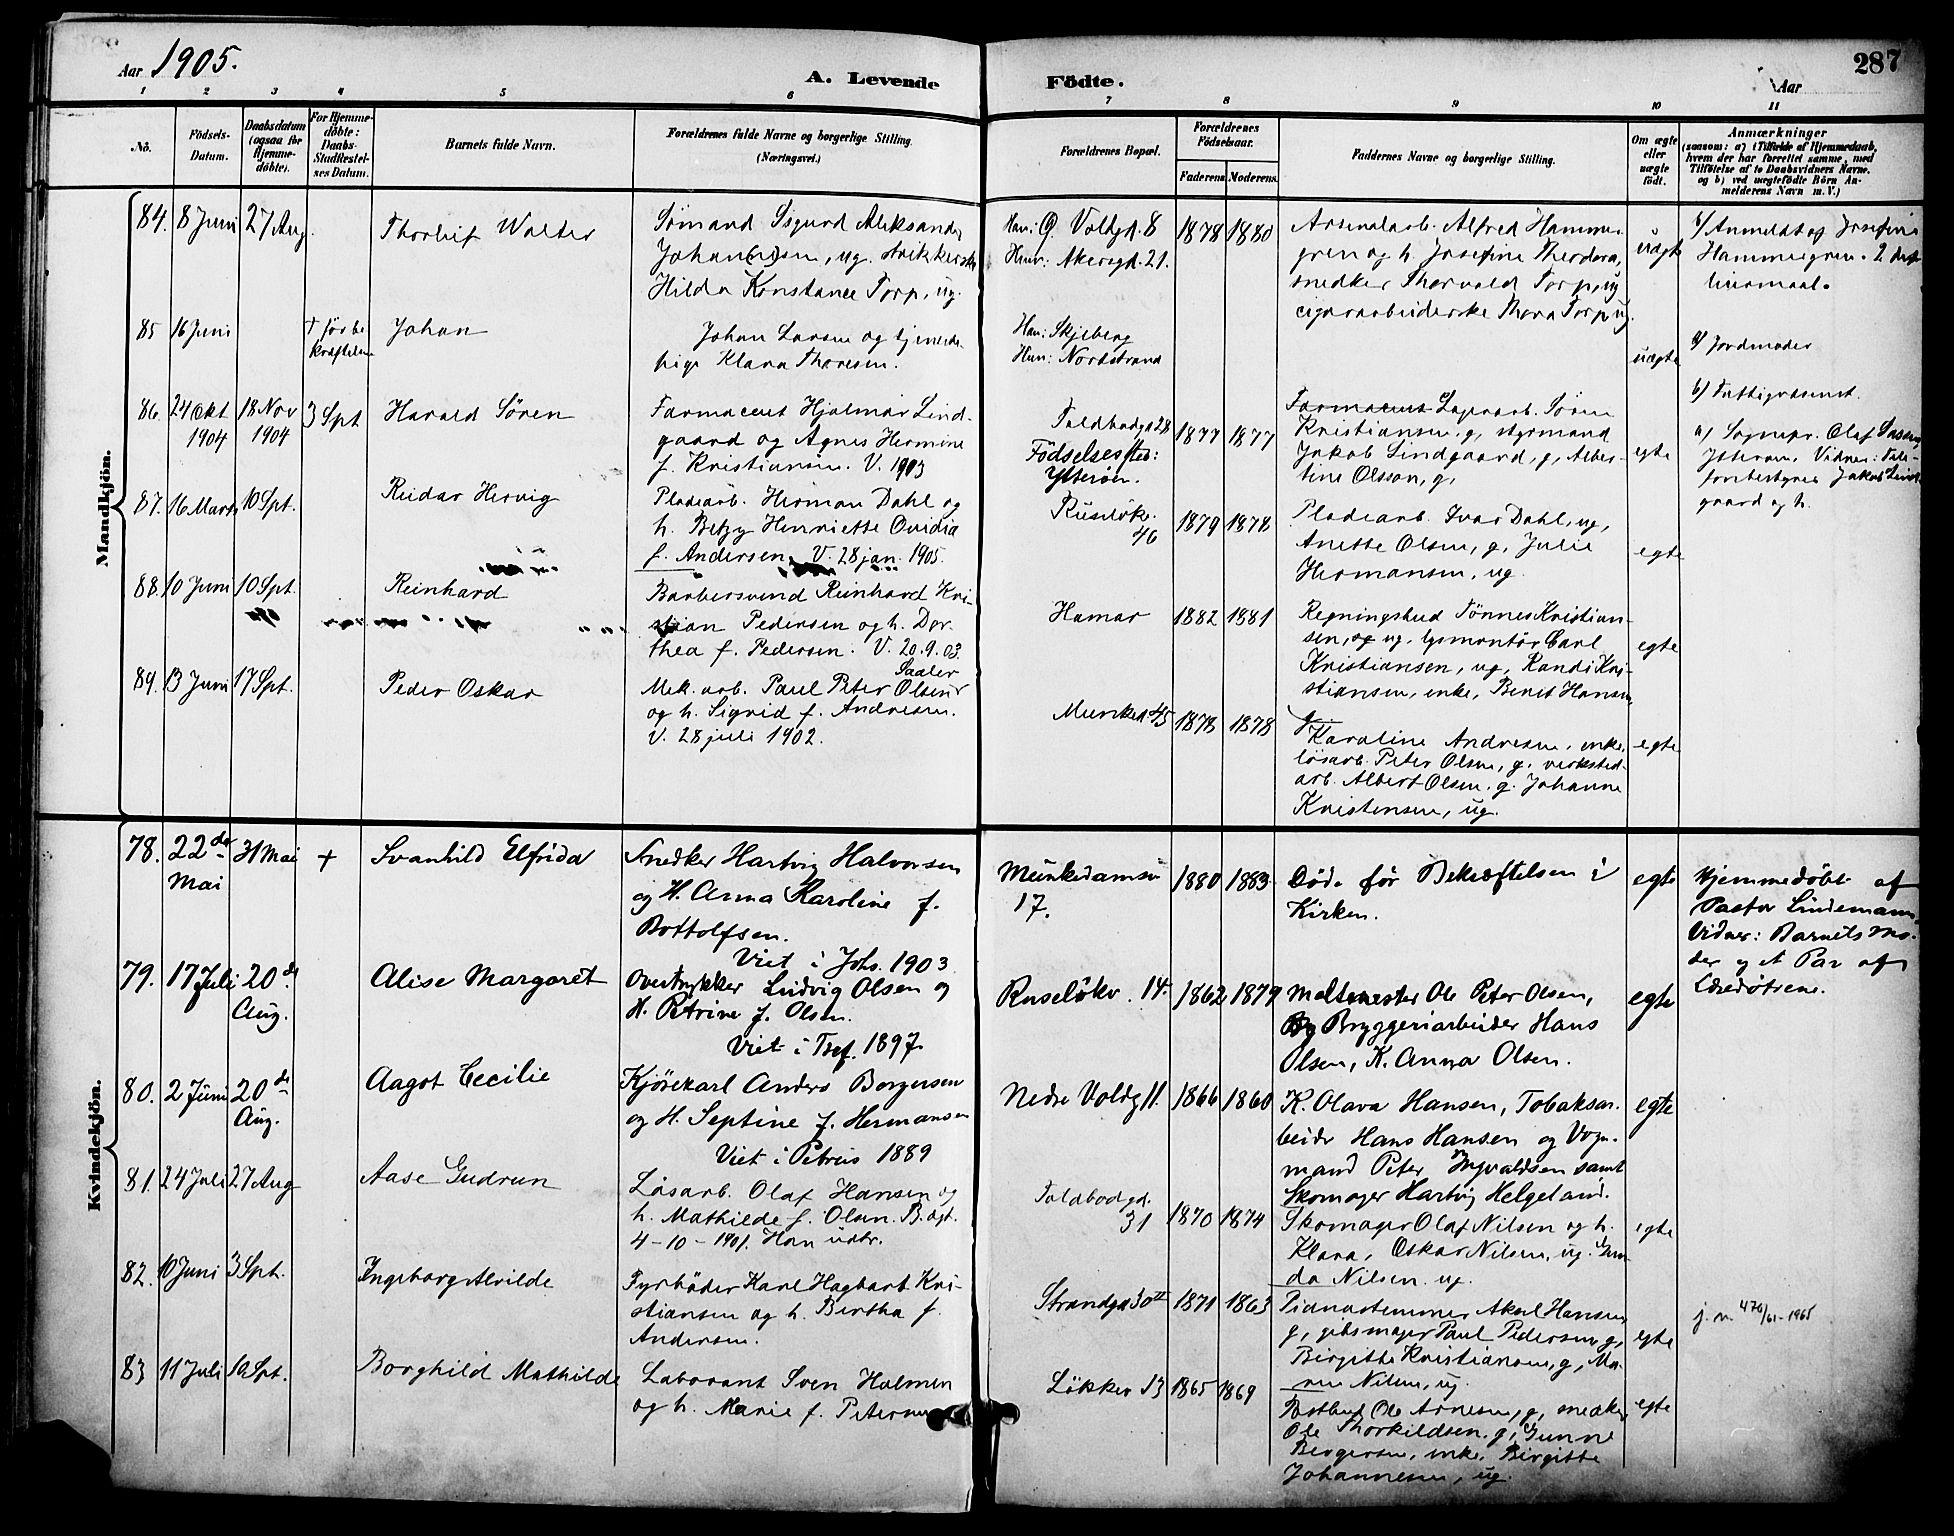 Aar 1905.
A. Levende Födte.
Aar
287
1 2 3 4 5 6 7 8 9 10 11
Nö.
Födsels-
Datum.
Daabsdatum
(ogsaa for
Hjemme-
döbte).
For Hjemme-
döbte:
Daabs-
Stadfæstel-
ses Datum.
Barnets fulde Navn.
Forældrenes fulde Navne og borgerlige Stilling.
(Næringsvei.)
Forældrenes Bopæl.
Forældrenes
Födselsaar.
Faderens Moderens.
Faddernes Navne og borgerlige Stilling.
Om ægte
eller
uægte
födt.
Anmærkninger
(saasom: a) i Tilfælde af Hjemmedaab,
hvem der har forrettet samme, med
Tilföielse af to Daabsvidners Navne.
og b) ved uægtefödte Börn An-
melderens Navn m. V.)
Mandkjön.
84. 8 Juni 27 Aug.
Thorleif Walter
Sømand Sigurd Aleksander
Johan(n)sen, ug. strikkerske
Hilda Konstance Torp, ug.
Han: Ø. Voldgd. 8
Hun: Akersgd. 21.
1878 1880
Arsenalarb. Alfred Hammer-
gren og h. Josefine Theodora,
snedker Thorvald Torp, ug
cigararbeiderske Thora Torp ug.
uægte
b/ Anmeldt af Josefine
Hammergren. 2
livsmaal.
85 16 Juni
† før be-
kræftelsen
Johan
Johan Larsen og tjeneste-
pige Klara Thoresen.
Han: Skjeberg
Hun: Nordstrand
uægte
a/ Jordmoder
b/ Fattigvæsenet.
86. 24 Okt 1904
18 Nov 1904
3 Spt
Harald Sören
Farmaceut Hjalmar Lind-
gaard og Agnes Hermine
f. Kristiansen. V. 1903
Toldbodgd 28
Födselsested:
Ytterøen.
1877 1877
Farmaceut Lagerarb. Sören
Kristiansen, g, styrmand
Jakob Lindgaard, g, Alber-
tine Olsson, g,
egte
a) Sognepr. Olaf
Ytterøen. Vidner: Tele-
fonbestyrer Jakob Lind-
gaard og h.
87. 16 Marts 10 Spt.
Reidar Hervig
Pladearb. Herman Dahl og
h. Betzy Henriette Ovidia
f. Andersen. V. 28 jan. 1905.
Ruseløk.
46
1879 1878
Pladearb. Ivar Dahl, ug,
Anette Olsen, g. Julie
Hermansen, ug.
egte
88. 10 Juni 10 Spt.
Reinhard
Barbersvend Reinhard Kri-
stian Pedersen og h. Dor-
thea f. Pedersen. V. 20.9.03.
Hamar
1882 1881
Regningsbud Tönnes Kristian-
sen, og ug. lysmontör Carl
Kristiansen, ug, Randi Kri-
stiansen, enke, Bernt Hansen
g
egte
89. 13 Juni 17 Spt.
Peder Oskar
Saaler
Mek. arb. Paul Peter Olsen
og h. Sigrid f. Andresen.
V. 28 juli 1902.
Munked. 45
1878 1878
Karoline Andresen, enke,
løsarb. Peter Olsen, g, verksted-
arb. Albert Olsen, g. Johanne
Kristensen, ug.
egte
Kvindekjön.
78. 22de Mai
31 Mai
+
Svanhild Elfrida
Snedker Hartvig Halvorsen
og H. Anna Karoline f.
Bottolfsen.
Viet i Johs. 1903
Munkedamsv
17.
1880 1883.
Døde før Bekræftelsen i
Kirken.
egte
Hjemmedøbt af
Pastor Lindemann
Vidner: Barnets Mo-
der og et Par af
Lægedøtrene.
79. 17 Juli 20de Aug.
Alise Margaret
Overtrykker Ludvig Olsen og
H. Petrine f. Olsen.
Viet i Tref. 1897
Ruseløkv. 14.
1862 1879
Maltmester Ole Peter Olsen,
Bryggeriarbeider Hans
Olsen, K. Anna Olsen.
egte
80. 2 Juni 20de Aug.
Aagot Cecilie
Kjørekarl Anders Borgersen
og H. Septine f. Hermansen
Viet i Petrus 1889
Nedre Voldg 11.
1866 1860
K. Olava Hansen, Tobaksar-
beider Hans Hansen og Vogn-
mand Peter Ingvaldsen samt
Skomager Hartvig Helgeland.
egte
81. 24 Juli 27 Aug
Aase Gudrun
Løsarb. Olaf Hansen og
h. Mathilde f. Olsen. B. ægt.
4-10-1901. Han udtr.
Toldbodgd.
31
1870 1874
Skomager Olaf Nilsen og h.
Klara, Oskar Nilsen, ug. Gun-
da Nilsen. ug.
egte
82. 10 Juni 3 Spt.
Ingeborg Alvilde
Fyrbøder Karl Hagbart Kri-
stiansen og h. Bertha f.
Andersen.
Strandgd 30 II
1871 1863
Pianostemmer Aksel Hansen
g, gibsmager Paul Pedersen g,
Birgitte Kristiansen, g, Ma-
rie Nilsen, ug.
egte
j. n. 476/61-1965
83 11 Juli 10 Spt.
Borghild Mathilde
Laborant Sven Holmen
og h. Marie f. Petersen
Løkkev 13
1865 1869
Postbud Ole Arnesen, g, snedker
Ole Thorkildsen, g, Gunne
Birgersen, enke, Birgitte
Johannesen, ug.
egte